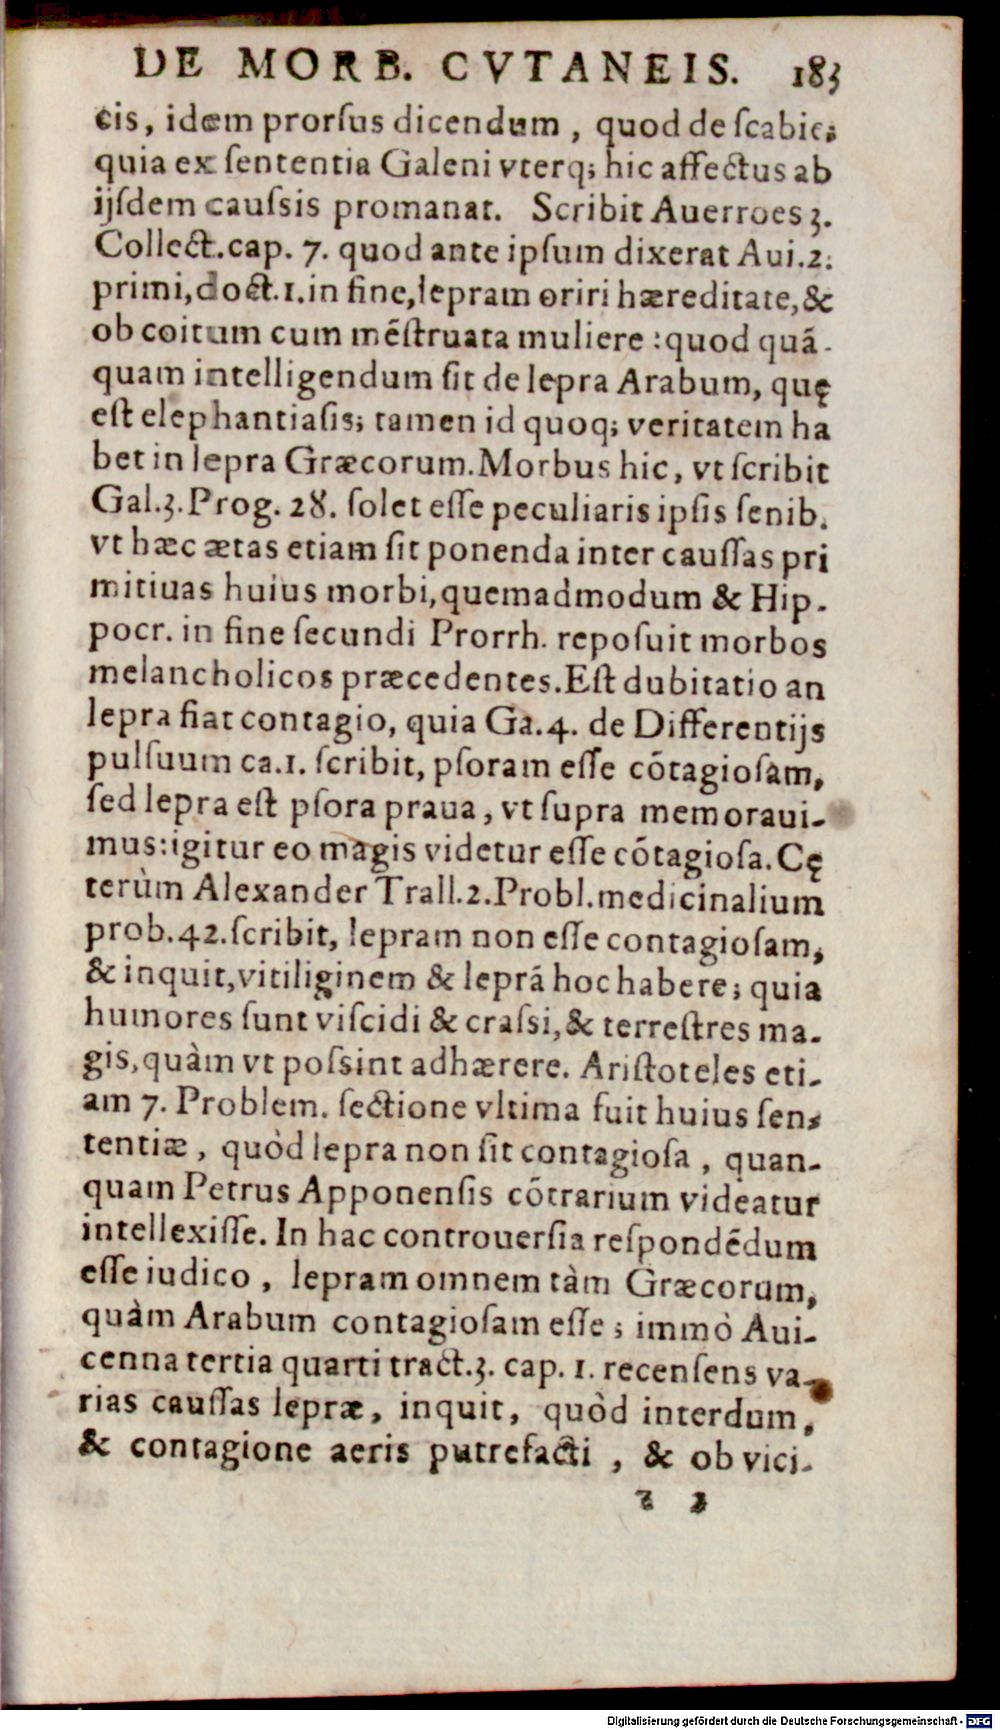 DE MORB. CVTANEIS. 183
cis, idem prorſus dicendum, quod de ſcabie;
quia ex ſententia Galeni vterq; hic affectus ab
ijſdem cauſsis promanat. Scribit Auerroes 3.
Collect. cap. 7. quod ante ipſum dixerat Aui. 2.
primi, doct. 1. in fine, lepram oriri hæreditate, &
ob coitum cum mẽſtruata muliere : quod quã-
quam intelligendum ſit de lepra Arabum, quę
eſt elephantiaſis; tamen id quoq; veritatem ha
bet in lepra Græcorum. Morbus hic, vt ſcribit
Gal. 3. Prog. 28. ſolet eſſe peculiaris ipſis ſenib.
vt hæc ætas etiam ſit ponenda inter cauſſas pri
mitiuas huius morbi, quemadmodum & Hip-
pocr. in fine ſecundi Prorrh. repoſuit morbos
melancholicos præcedentes. Eſt dubitatio an
lepra fiat contagio, quia Ga. 4. de Differentijs
pulſuum ca. 1. ſcribit, pſoram eſſe cõtagioſam,
ſed lepra eſt pſora praua, vt ſupra memoraui-
mus: igitur eo magis videtur eſſe cõtagioſa. Cę
terùm Alexander Trall. 2. Probl. medicinalium
prob. 42. ſcribit, lepram non eſſe contagioſam,
& inquit, vitiliginem & leprã hoc habere; quia
humores ſunt viſcidi & craſsi, & terreſtres ma-
gis, quàm vt poſsint adhærere. Ariſtoteles eti-
am 7. Problem. ſectione vltima fuit huius ſen-
tentiæ, quòd lepra non ſit contagioſa, quan-
quam Petrus Apponenſis cõtrarium videatur
intellexiſſe. In hac controuerſia reſpondẽdum
eſſe iudico, lepram omnem tàm Græcorum,
quàm Arabum contagioſam eſſe; immò Aui-
cenna tertia quarti tract. 3. cap. 1. recenſens va-
rias cauſſas lepræ, inquit, quòd interdum,
& contagione aeris putrefacti, & ob vici-
z 2
Digitalisierung gefördert durch die Deutsche Forschungsgemeinschaft - DFG